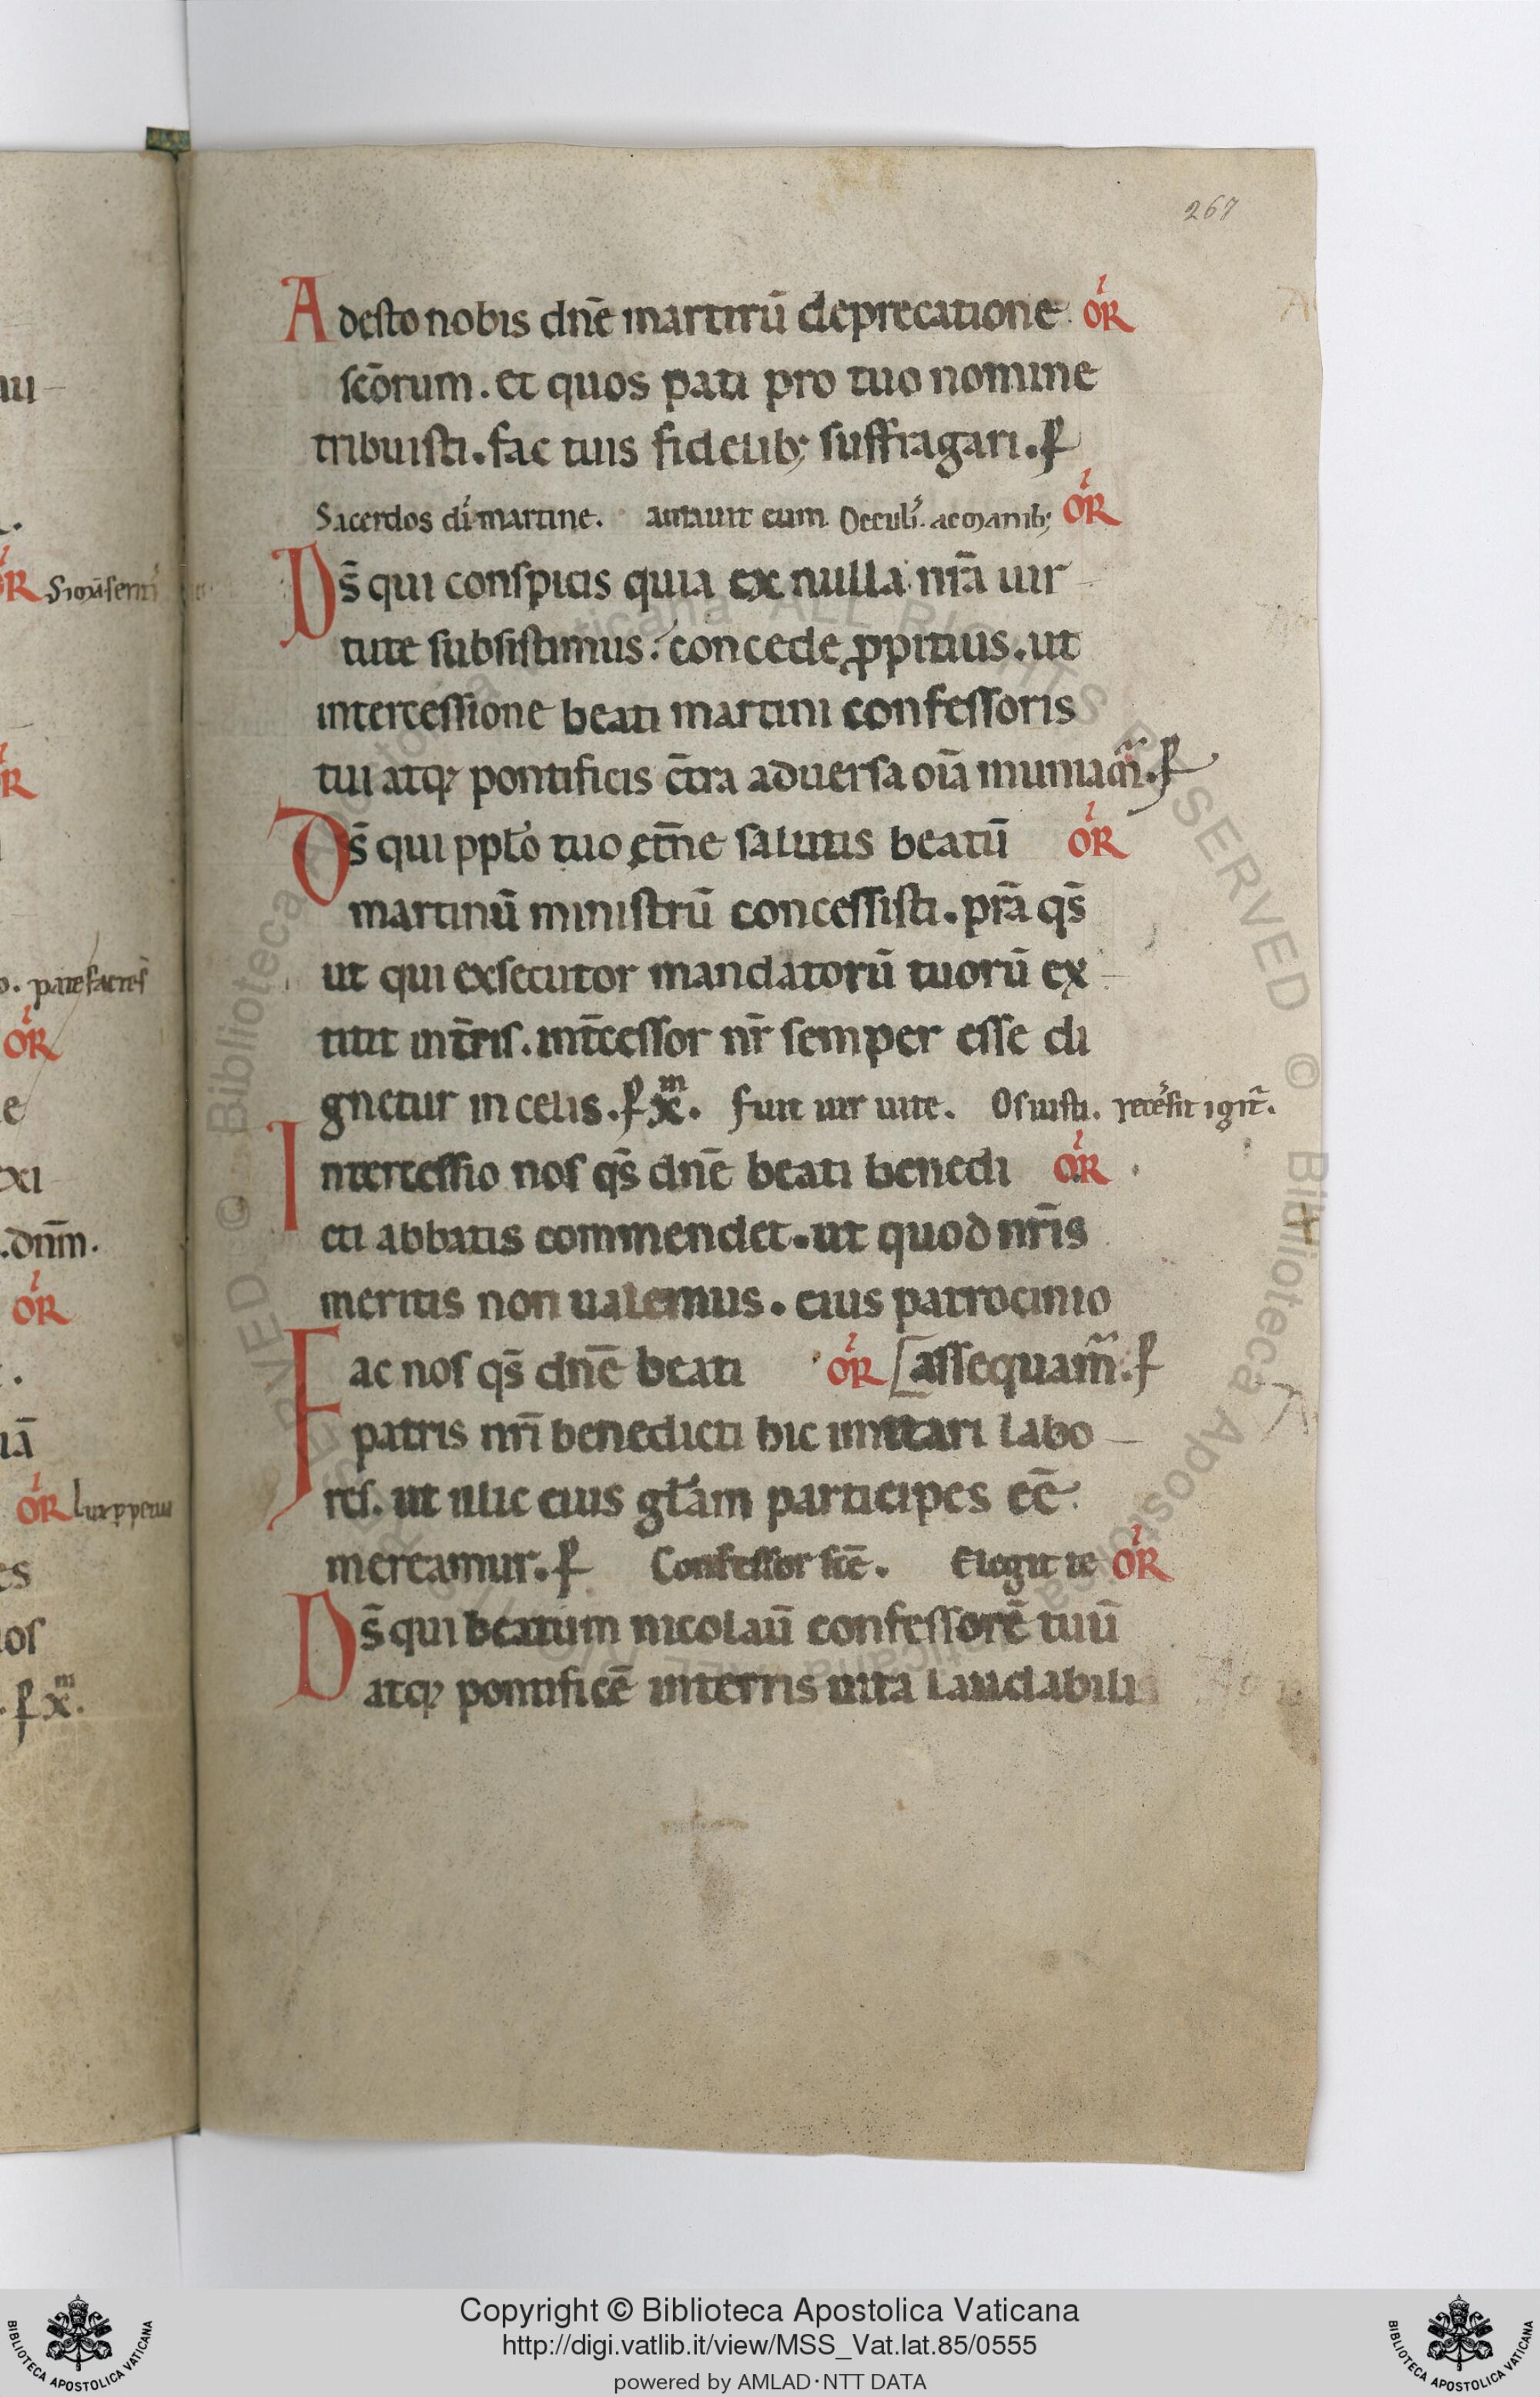 267
Adesto nobis dñe martirũ deprecatione. ÓR
sc̄orum. et quos pati pro tuo nomine
tribuisti. fac tuis fidelib; suffragari. P
Sacerdos di martine. amauit eum. Oculi. ac manib; ÓR
Ds̄ qui conspicis quia ex nulla nr̄a uir
tute subsistimus: concede ꝓpitius. ut
intercessione beati martini confessoris
tui atq; pontificis c̄tra aduersa oīa muniam̃. P
Ds̄ qui pplo tuo ęt̄ne salutis beatū ÓR
martinū ministrū concessisti. pr̄a qs̄
ut qui exsecutor mandatorū tuorū ex
titit in t̄ris. int̄cessor nr̄ semper esse di
gnetur in celis. P xm̄. fuit uir uite. Os iusti. recessit igit̄.
Intercessio nos qs̄ dn̄e beati benedi ÓR
cti abbatis commendet. ut quod nr̄is
meritis non ualemus. eius patrocinio
Fac nos qs̄ dn̄e beati ÓR [assequam̃. P
patris nr̄i benedicti hic imitari labo
res. ut illic eius gl̄am participes eē
mereamur. P Confessor sc̄e. Elegit te ÓR
Ds̄ qui beatum nicolaū confessorē tuū
atq; pontificē in terris uita laudabilis
Copyright © Biblioteca Apostolica Vaticana
http://digi.vatlib.it/view/MSS_Vat.lat.85/0555
powered by AMLAD·NTT DATA
BIBLIOTECA APOSTOLICA VATICANA
BIBLIOTECA APOSTOLICA VATICANA